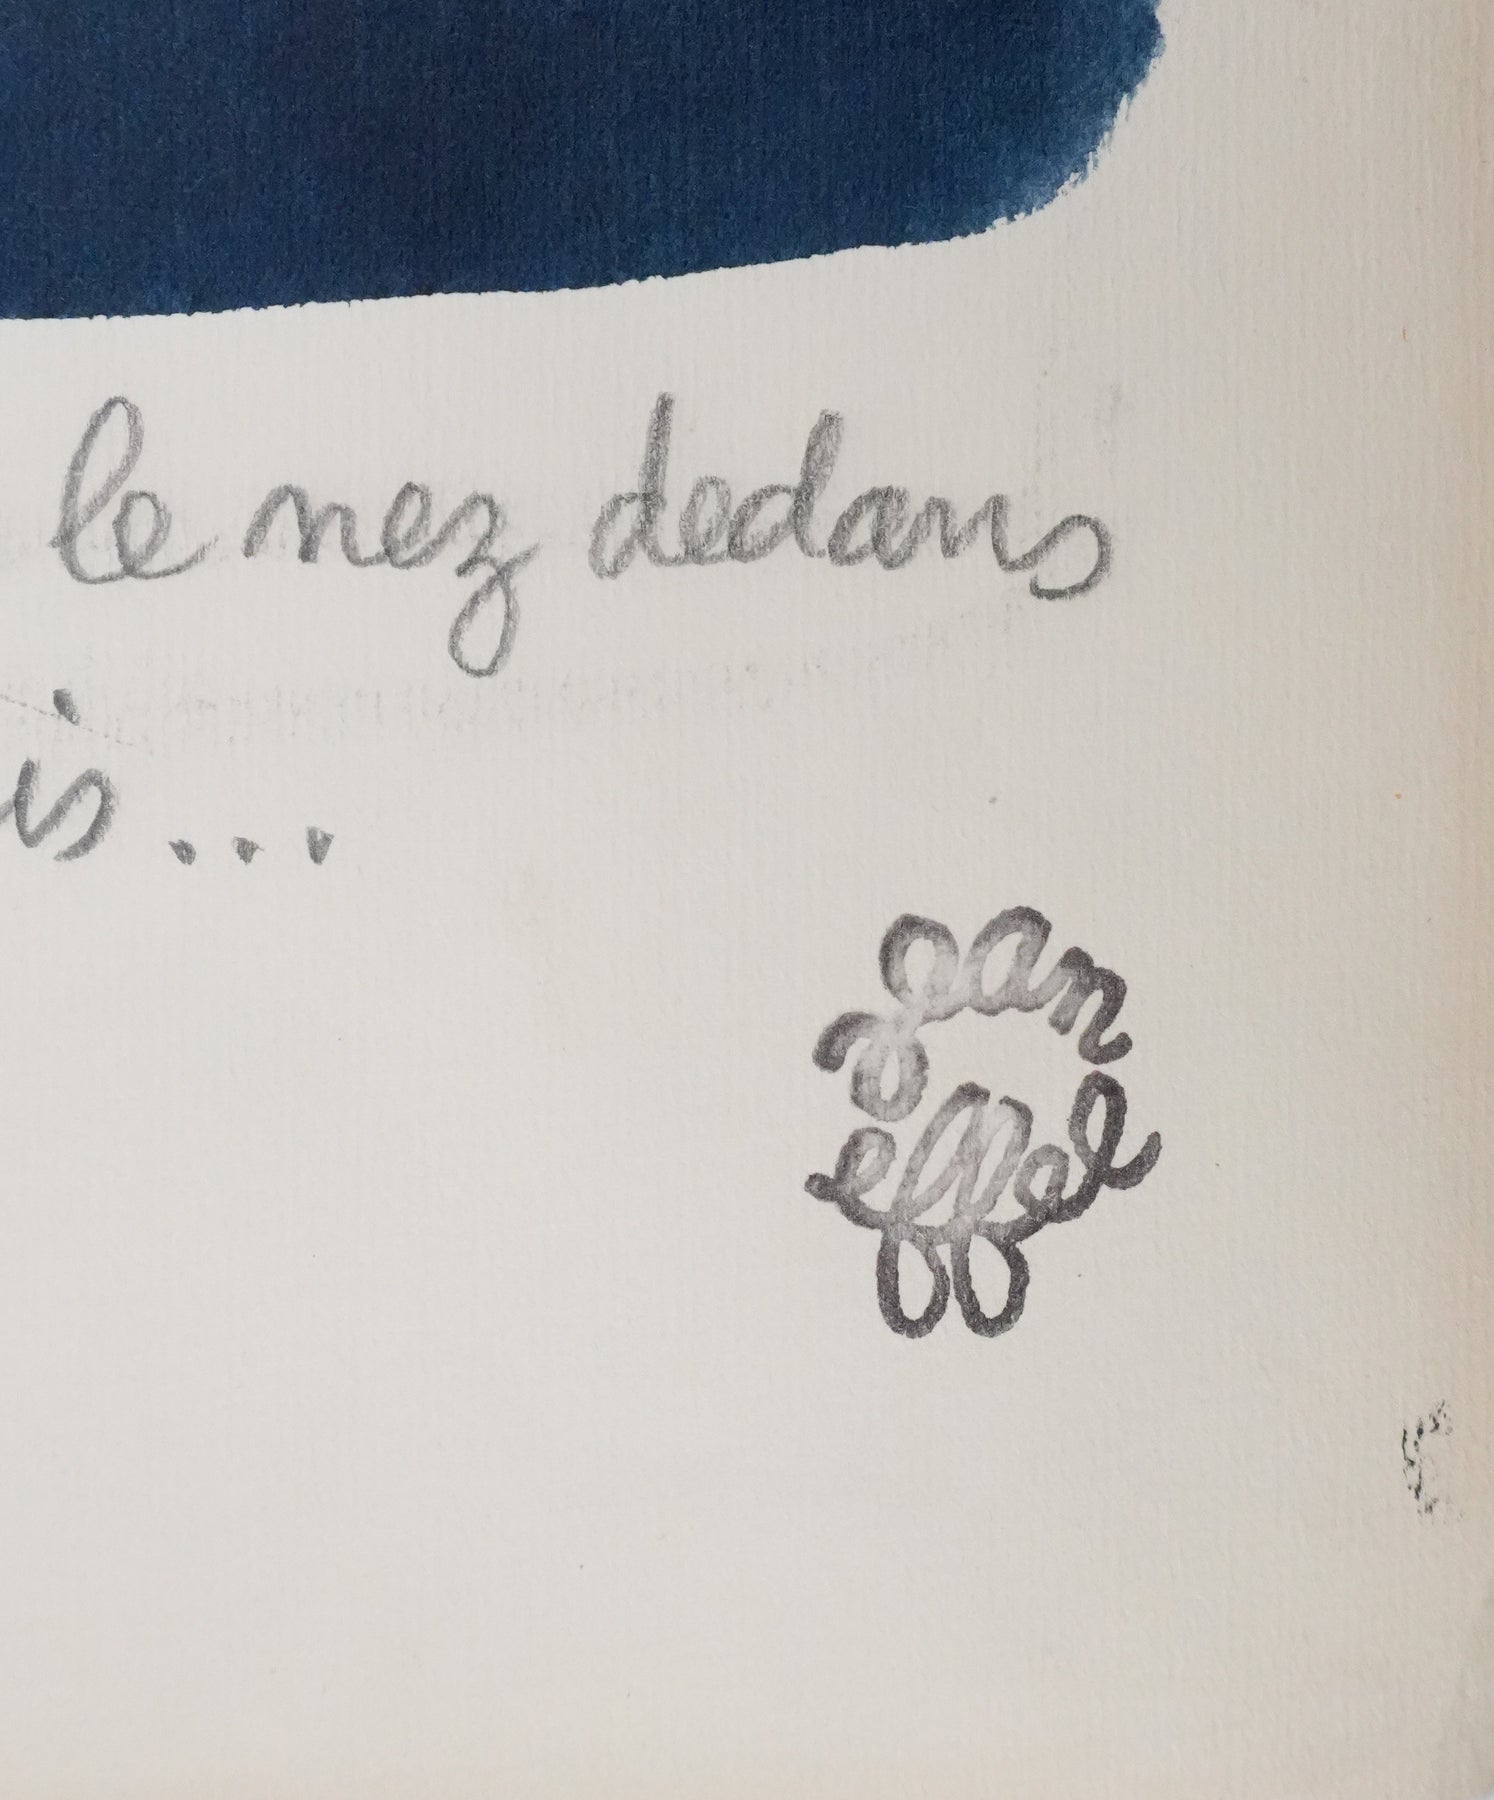 le nez dedans
is...
jean
effel